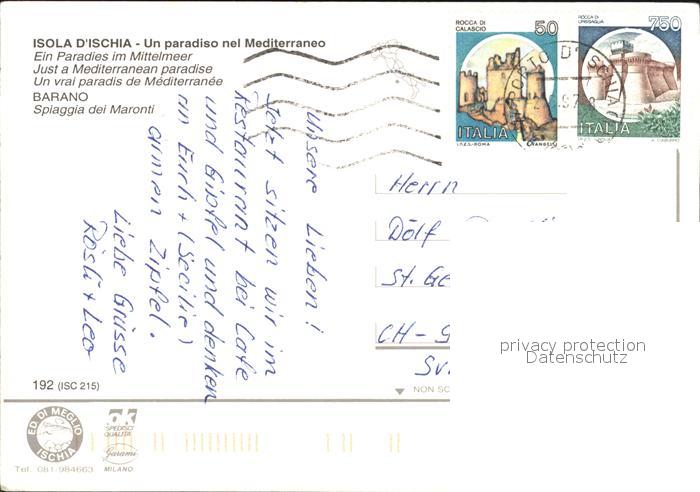 ISOLA D'ISCHIA - Un paradiso nel Mediterraneo
Ein Paradies im Mittelmeer
Just a Mediterranean paradise
Un vrai paradis de Méditerranée
BARANO
Spiaggia dei Maronti
ROCCA DI
CALASCIO
50
ITALIA
I.P.Z.S.-ROMA
ROCCA DI
URBISAGLIA
750
ITALIA
Unsere Lieben!
Jetzt sitzen wir im
Restaurant bei Cafe
und Gipfel und denken
an Euch + (Secilie)
armen Zipfel.
Liebe Grüsse
Rösli + Leo
Herrn
Dölf
St. Ge
CH - 9
Sv
privacy protection
Datenschutz
192 (ISC 215)
NON SC
ED. DI MEGLIO
ISCHIA
Tel. 081-984663
OK
SPEDISCI
QUALITÀ
Garami
MILANO